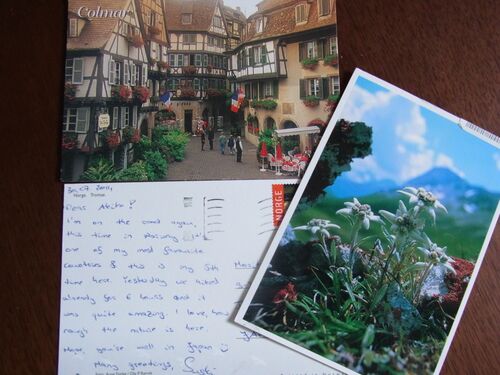 Colmar
30.07.2014
Norge. Tromsø
Dear Akiko!
I'm on the road again,
this time in Norway
one of my most favourite
countries & this is my 5th
time here. Yesterday we hiked
already for 6 hours and it
was quite amazing. I love, how
rough the nature is here.
Hope, you're well in Japan
Many greetings,
NORGE